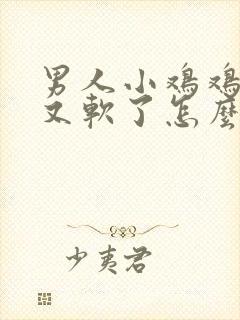 男人小鸡鸡
又軟了怎麼
少夷君